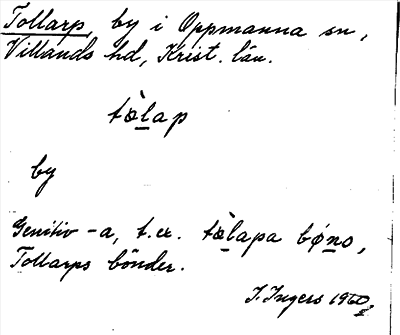 Tollarp, by i Oppmanna sn,
Villands hd, Krist. län.
tɷ̀lap
by
Genitiv -a, t.ex. tɷ̀lapa bøno,
Tollarps bönder.
I. Ingers 1960